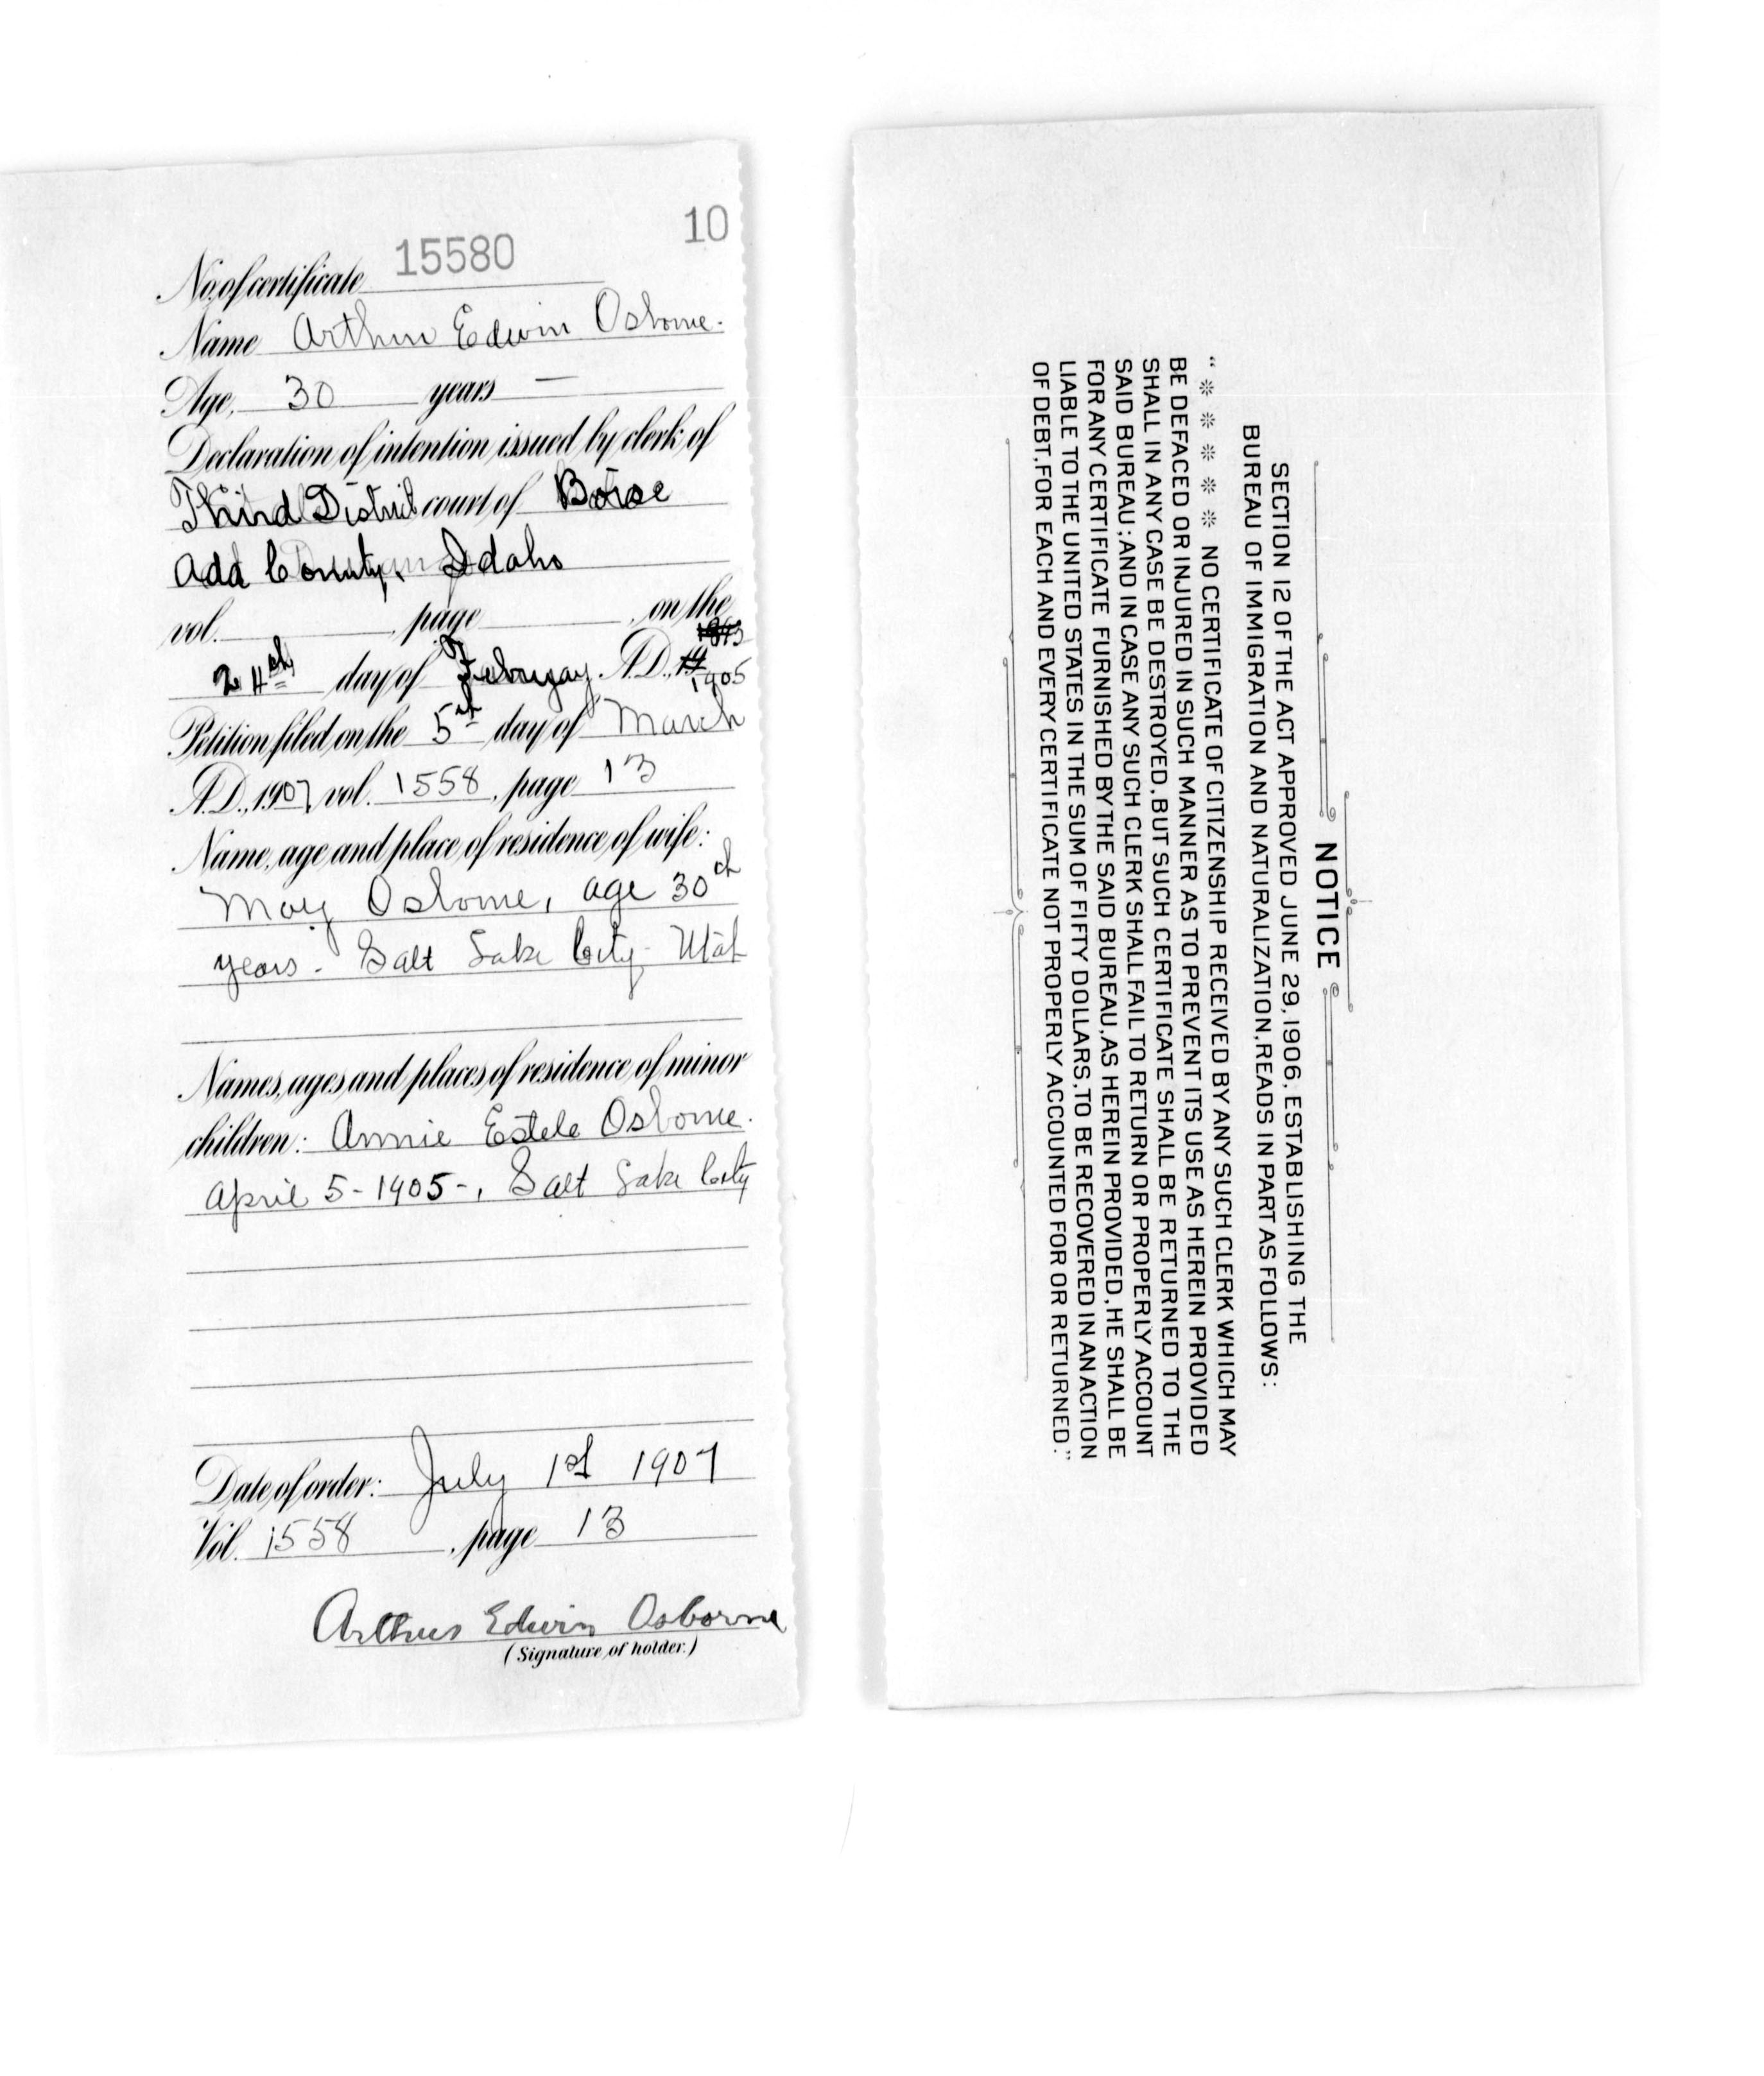 10
No. of certificate 15580
Name Arthur Edwin Osborne.
Age, 30 years —
Declaration of intention issued by clerk of
Third District court of Boise
Add County, Idaho
vol. , page , on the
24th day of Februyay A.D., 1905
Petition filed on the 5th day of March
A.D., 1907, vol. 1558, page 13
Name, age and place of residence of wife:
May Osborne, age 30
years. Salt Lake City Utah
Names, ages and places of residence of minor
children: Annie Estele Osborne.
April 5-1905-, Salt Lake City
Date of order: July 1st 1907
Vol. 1558, page 13
Arthur Edwin Osborne
(Signature of holder.)
NOTICE
SECTION 12 OF THE ACT APPROVED JUNE 29, 1906, ESTABLISHING THE
BUREAU OF IMMIGRATION AND NATURALIZATION, READS IN PART AS FOLLOWS:
"※ ※ ※ ※ ※ NO CERTIFICATE OF CITIZENSHIP RECEIVED BY ANY SUCH CLERK WHICH MAY
BE DEFACED OR INJURED IN SUCH MANNER AS TO PREVENT ITS USE AS HEREIN PROVIDED
SHALL IN ANY CASE BE DESTROYED, BUT SUCH CERTIFICATE SHALL BE RETURNED TO THE
SAID BUREAU; AND IN CASE ANY SUCH CLERK SHALL FAIL TO RETURN OR PROPERLY ACCOUNT
FOR ANY CERTIFICATE FURNISHED BY THE SAID BUREAU, AS HEREIN PROVIDED, HE SHALL BE
LIABLE TO THE UNITED STATES IN THE SUM OF FIFTY DOLLARS, TO BE RECOVERED IN AN ACTION
OF DEBT, FOR EACH AND EVERY CERTIFICATE NOT PROPERLY ACCOUNTED FOR OR RETURNED."